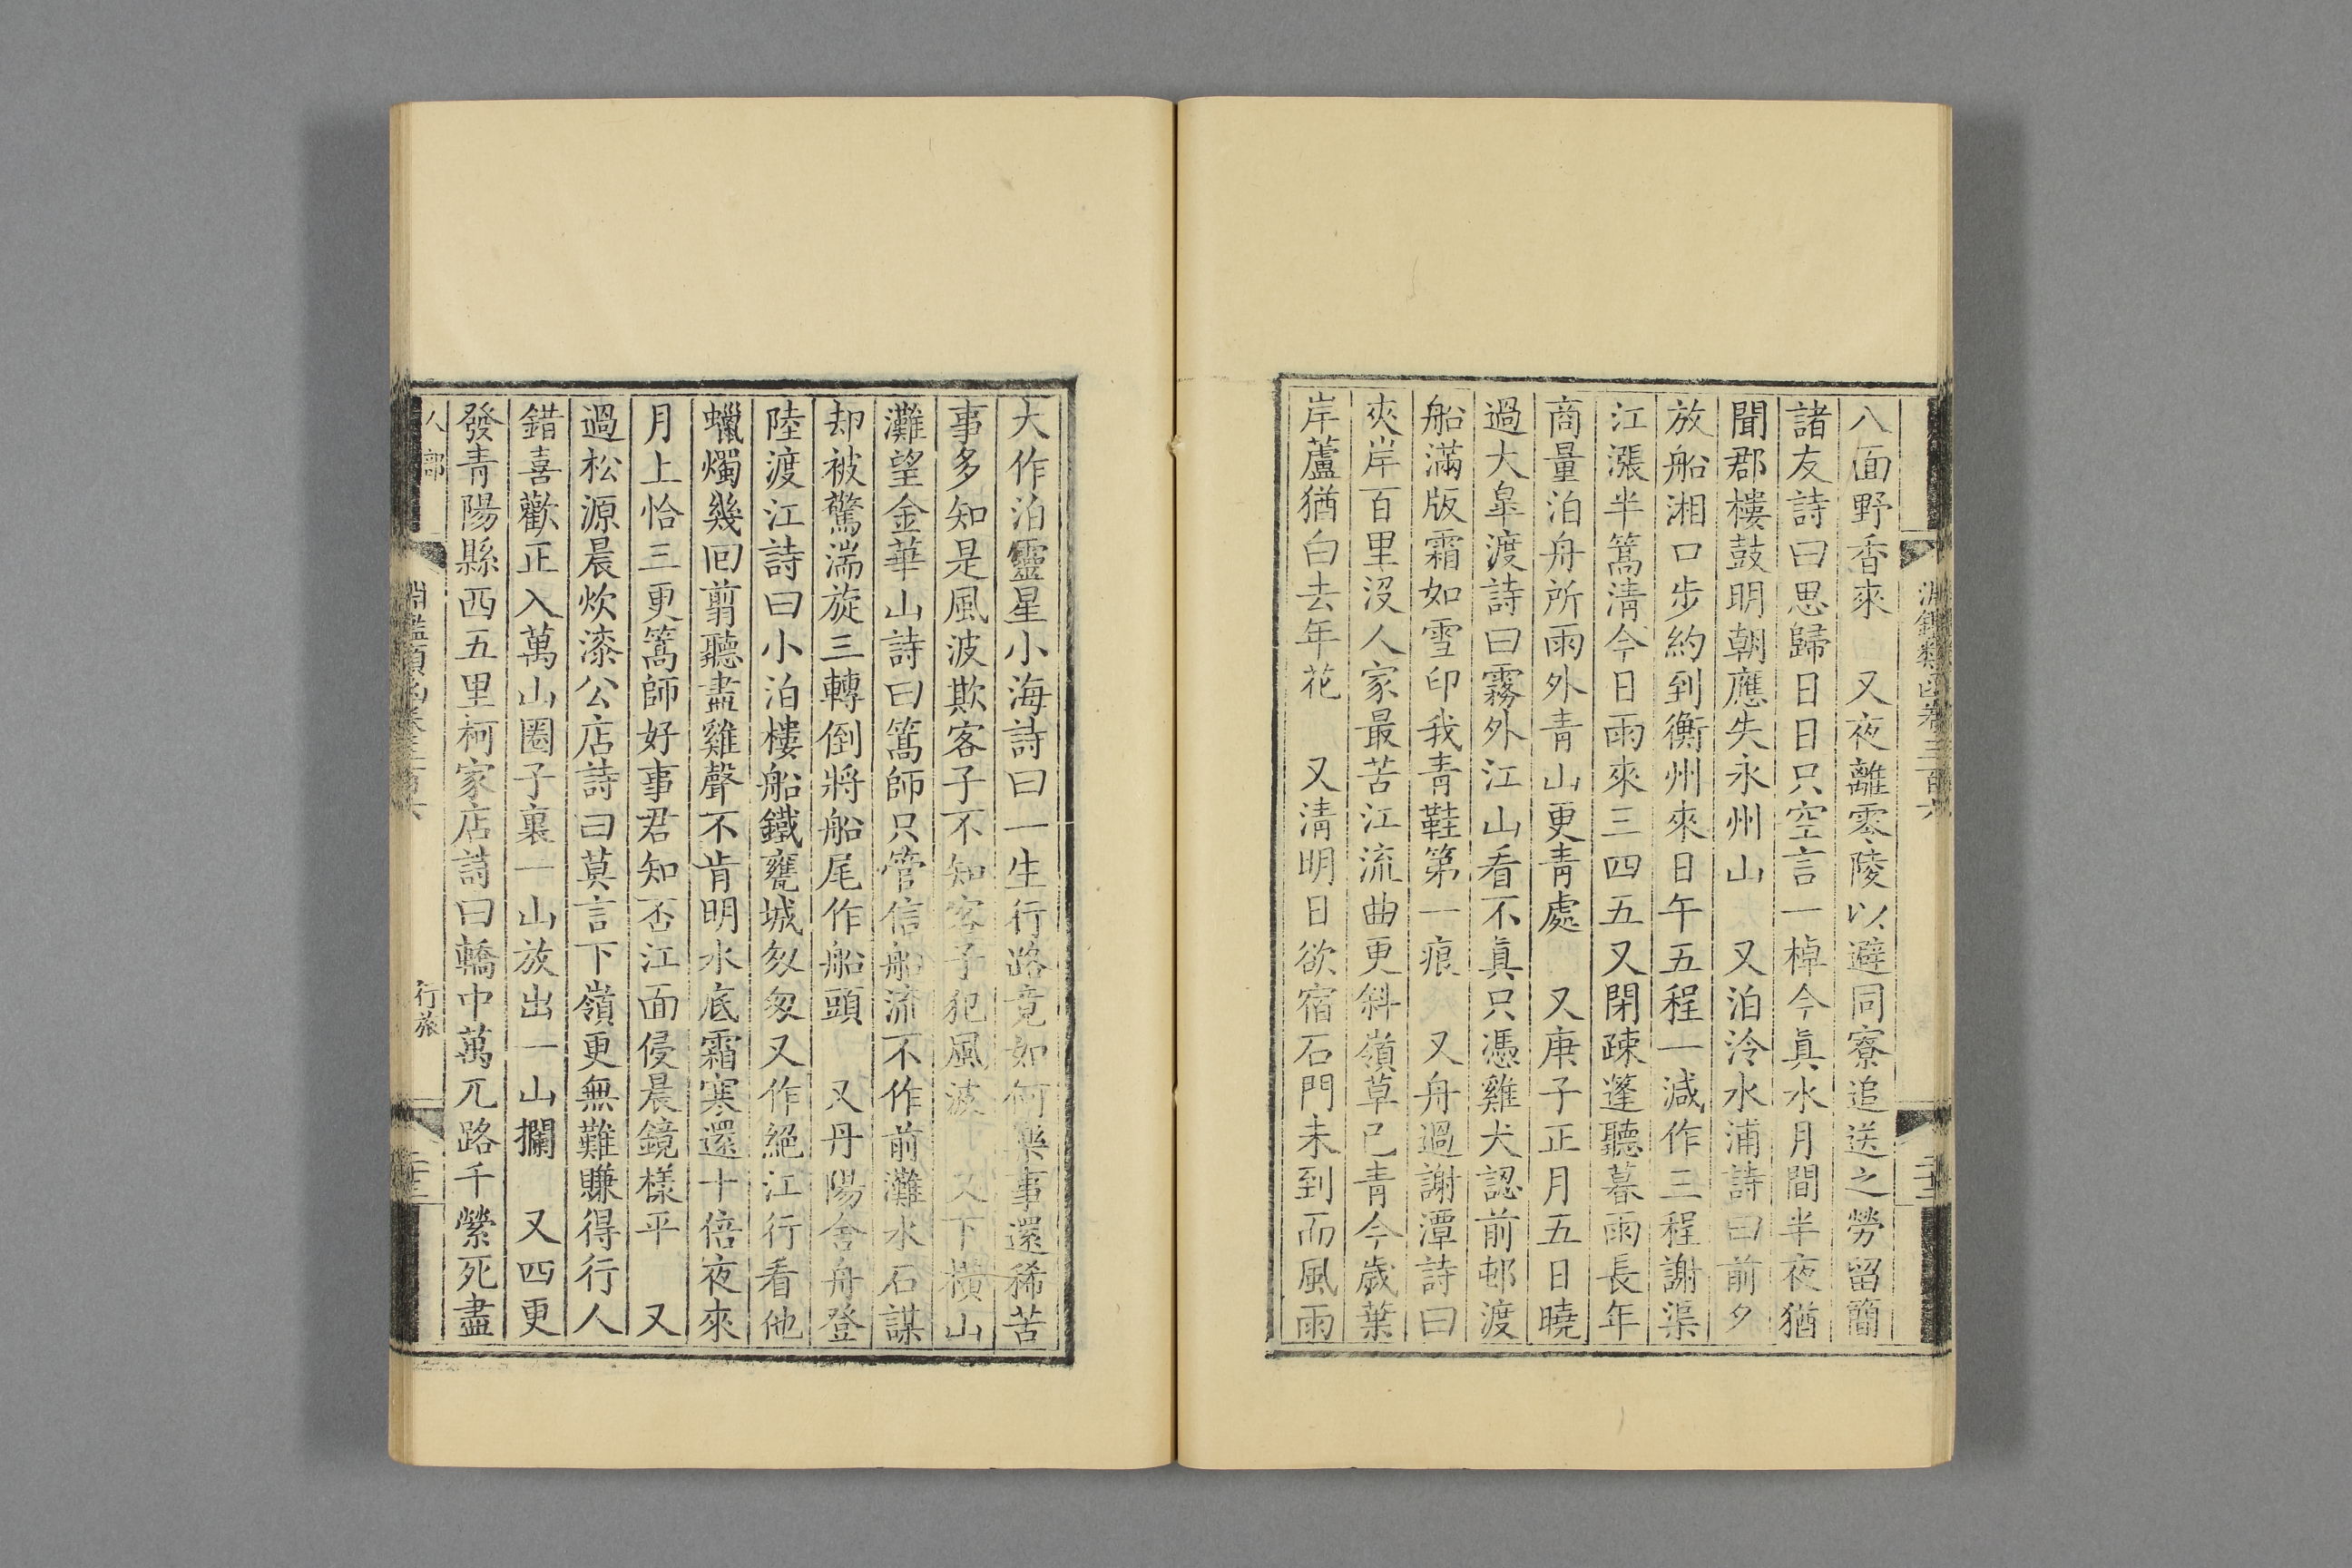 淵鑑類函卷三百六
八面野香來　又夜離零陵以避同寮追送之勞留簡
諸友詩曰思歸日日只空言一棹今眞水月間半夜猶
聞郡樓鼓明朝應失永州山　又泊泠水浦詩曰前夕
放船湘口步約到衡州來日午五程一減作三程謝渠
江漲半篙淸今日雨來三四五又閉疎蓬聽暮雨長年
商量泊舟所雨外靑山更靑處　又庚子正月五日曉
過大皐渡詩曰霧外江山看不眞只憑雞犬認前邨渡
船滿版霜如雪印我靑鞋第一痕　又舟過謝潭詩曰
夾岸百里沒人家最苦江流曲更斜嶺草已靑今歲葉
岸蘆猶白去年花　又淸明日欲宿石門未到而風雨
大作泊靈星小海詩曰一生行路竟如何樂事還稀苦
事多知是風波欺客子不知客子犯風波　又下橫山
灘望金華山詩曰篙師只管信船流不作前灘水石謀
却被驚湍旋三轉倒將船尾作船頭　又丹陽舍舟登
陸渡江詩曰小泊樓船鐵甕城匆匆又作絕江行看他
蠟燭幾回剪聽盡雞聲不肯明水底霜寒還十倍夜來
月上恰三更篙師好事君知否江面侵晨鏡樣平　又
過松源晨炊漆公店詩曰莫言下嶺更無難賺得行人
錯喜歡正入萬山圈子裏一山放出一山攔　又四更
發靑陽縣西五里柯家店詩曰轎中萬兀路千縈死盡
人部
淵鑑類函卷三百六
行旅